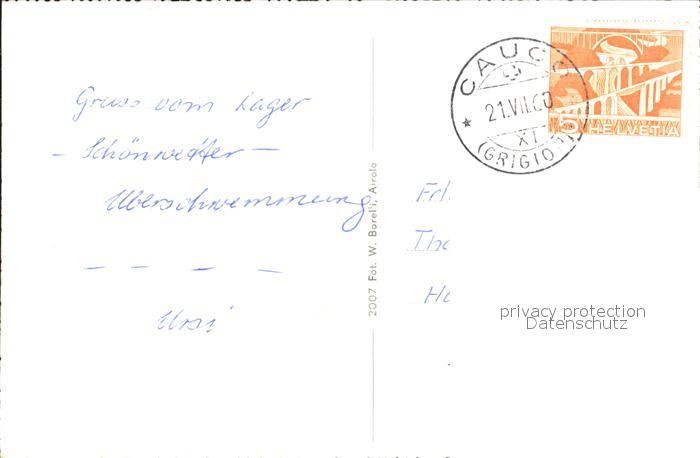 Gruss vom Lager
- Schönwetter -
Überschwemmung
- - - -
Ursi
2007 Fot. W. Borelli, Airolo
CAUCO
21.VII.60
XI
(GRIGIONI)
5 HELVETIA
Frl.
The
Ho
privacy protection
Datenschutz